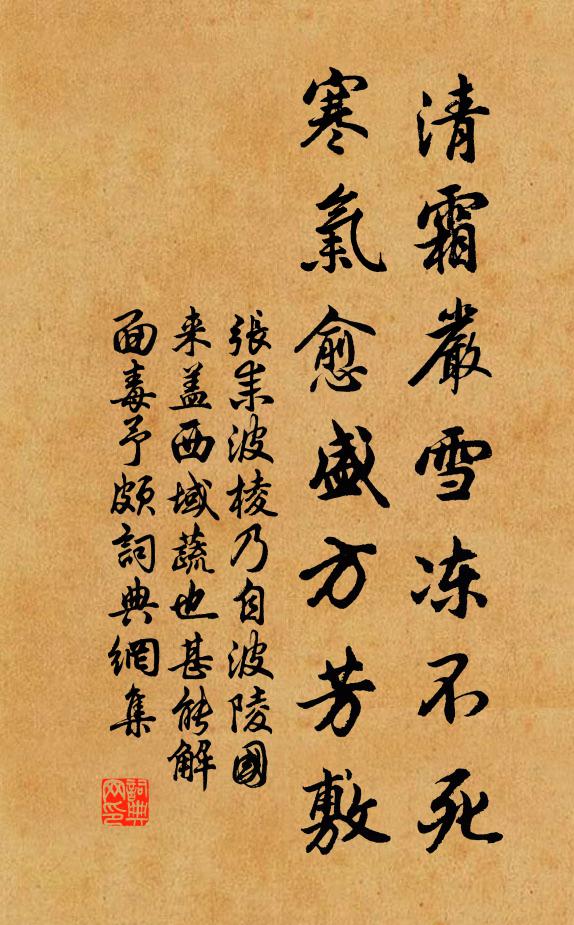 清霜嚴雪冻不死
寒氣愈盛方芳敷
張耒波棱乃自波陵國
来盖西域蔬也甚能解
面毒予頗詞典網集
詞典
网印